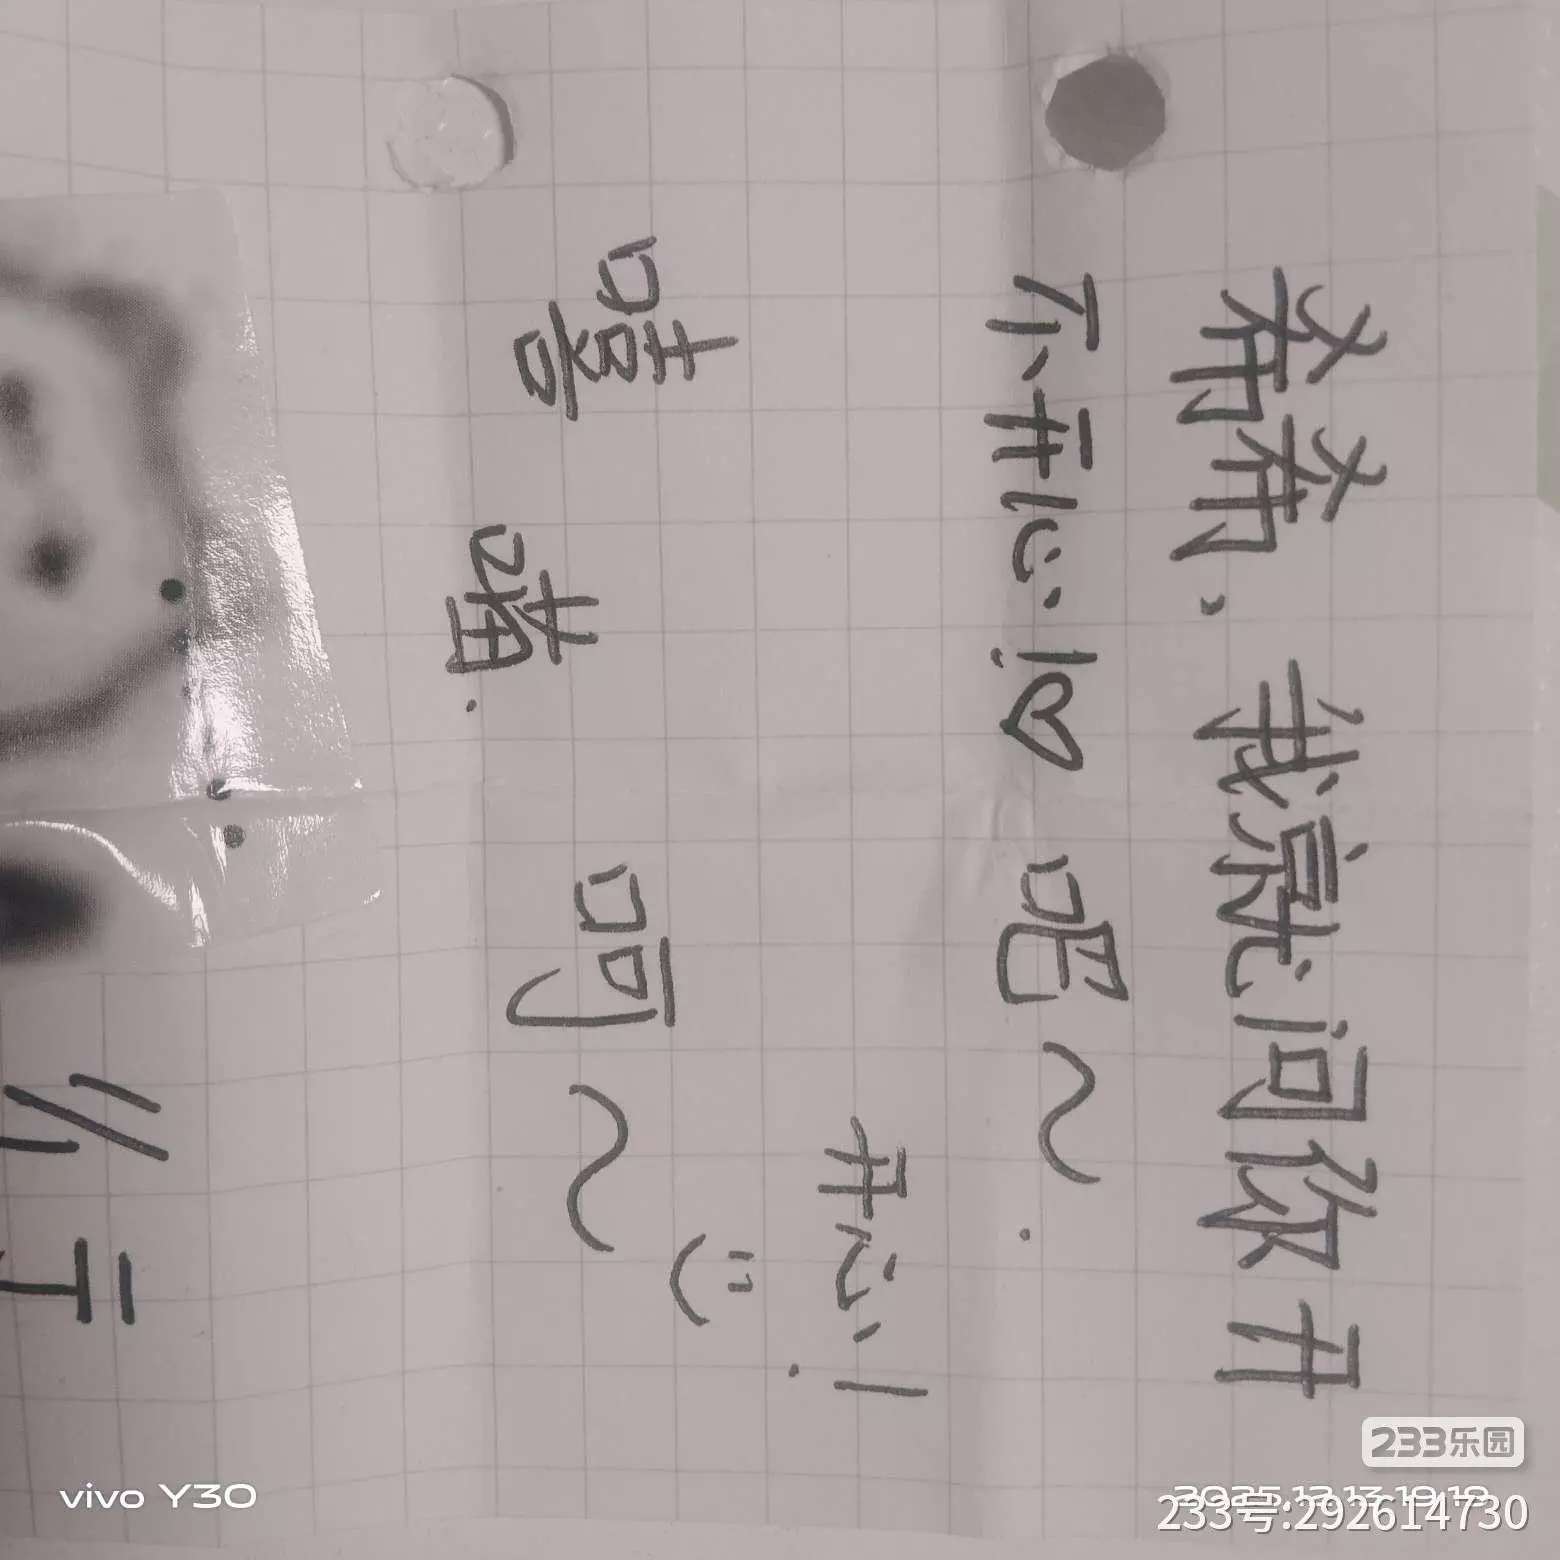 希希，我就问你开
不开心！♡ 吧～.
开心！
嘻 喵. 呵～
vivo Y30
233乐园
233号:292614730